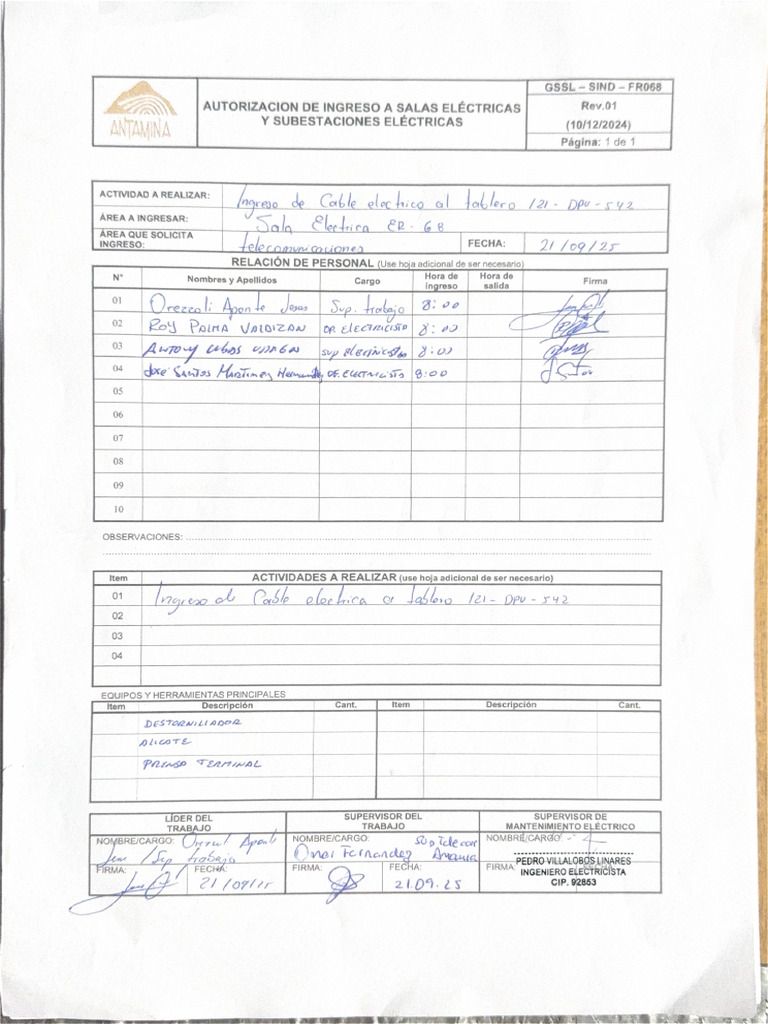 ANTAMINA
AUTORIZACION DE INGRESO A SALAS ELÉCTRICAS
Y SUBESTACIONES ELÉCTRICAS
GSSL – SIND – FR068
Rev.01
(10/12/2024)
Página: 1 de 1
ACTIVIDAD A REALIZAR: Ingreso de Cable electrico al tablero 121-DPU-542
ÁREA A INGRESAR: Sala Electrica ER-6B
ÁREA QUE SOLICITA INGRESO: telecomunicaciones FECHA: 21/09/25
RELACIÓN DE PERSONAL (Use hoja adicional de ser necesario)
N° Nombres y Apellidos Cargo Hora de ingreso Hora de salida Firma
01 Aponte Sup. trabajo 8:00
02 ROY PALMA VALDIZAN OP. ELECTRICISTA 8:00
03 ANTONY sup ELECTRICISTA 8:00
04 José SANTOS MARTINEZ Hernandez OP. ELECTRICISTA 8:00
05
06
07
08
09
10
OBSERVACIONES:
Item ACTIVIDADES A REALIZAR (use hoja adicional de ser necesario)
01 Ingreso de Cable electrica al tablero 121-DPU-542
02
03
04
EQUIPOS Y HERRAMIENTAS PRINCIPALES
Item Descripción Cant. Item Descripción Cant.
DESTORNILLADOR
ALICATE
PRENSA TERMINAL
LÍDER DEL TRABAJO
NOMBRE/CARGO: Aponte
/Sup trabajo
FIRMA: FECHA: 21/09/25
SUPERVISOR DEL TRABAJO
NOMBRE/CARGO: Sup Telecom
Omar Fernandez
FIRMA: FECHA: 21.09.25
SUPERVISOR DE MANTENIMIENTO ELÉCTRICO
NOMBRE/CARGO:
FIRMA: FECHA:
PEDRO VILLALOBOS LINARES
INGENIERO ELECTRICISTA
CIP. 92853